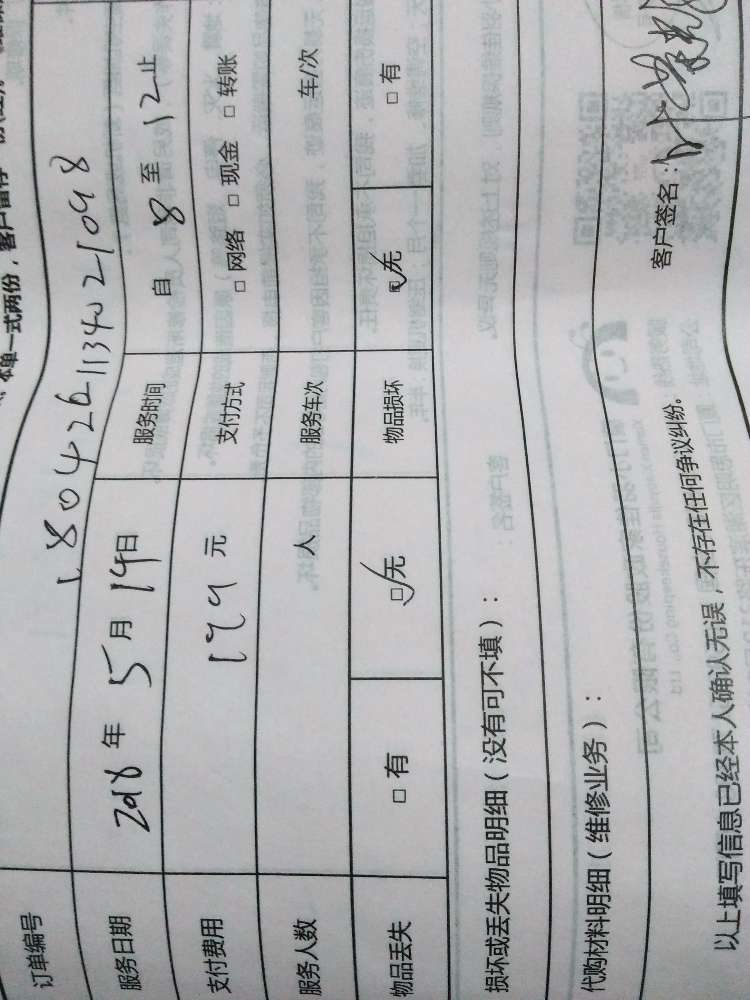 本单一式两份，客户留存
订单编号 1804261134021098
服务日期 2018 年 5 月 14 日 服务时间 自 8 至 12 止
支付费用 199 元 支付方式 □ 网络 □ 现金 □ 转账
服务人数 人 服务车次 车/次
物品丢失 □ 有 ☑无 物品损坏 ☑无 □ 有
损坏或丢失物品明细（没有可不填）：
代购材料明细（维修业务）：
客户签名：
以上填写信息已经本人确认无误，不存在任何争议纠纷。